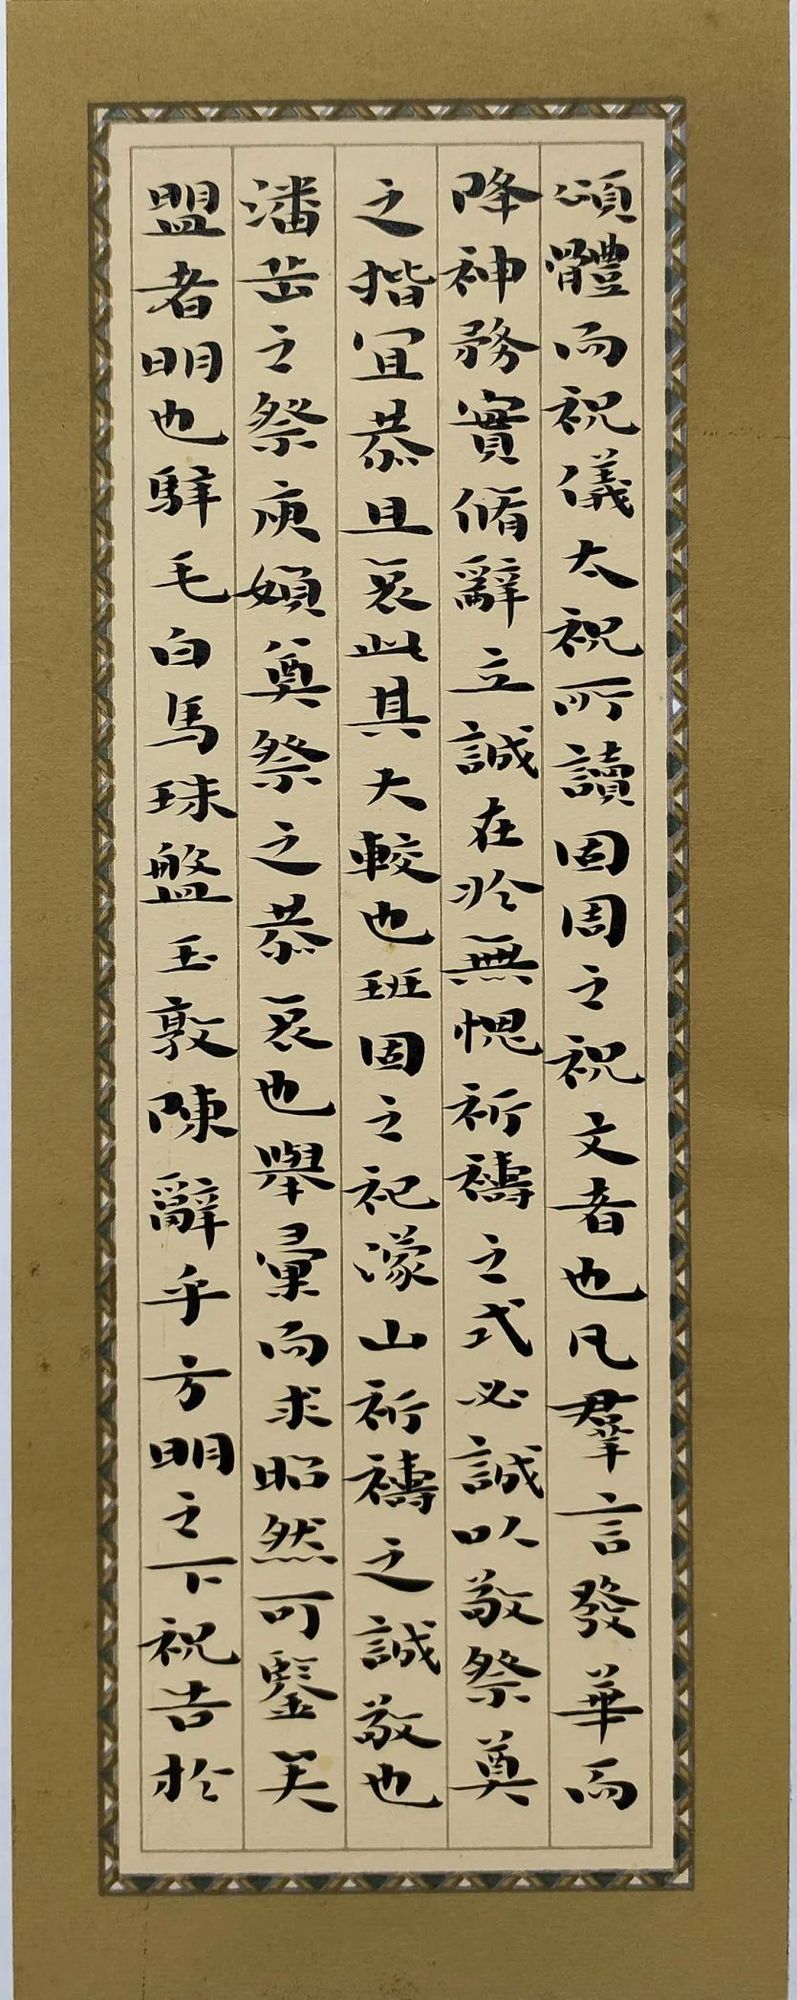 頌體而祝儀太祝所讀固周之祝文者也凡羣言發華而
降神務實脩辭立誠在於無愧祈禱之式必誠以敬祭奠
之揩宜恭且哀此其大較也班固之祀濛山祈禱之誠敬也
潘岳之祭庾婦奠祭之恭哀也舉彙而求昭然可鑒矣
盟者明也騂毛白馬珠盤玉敦陳辭乎方明之下祝告於